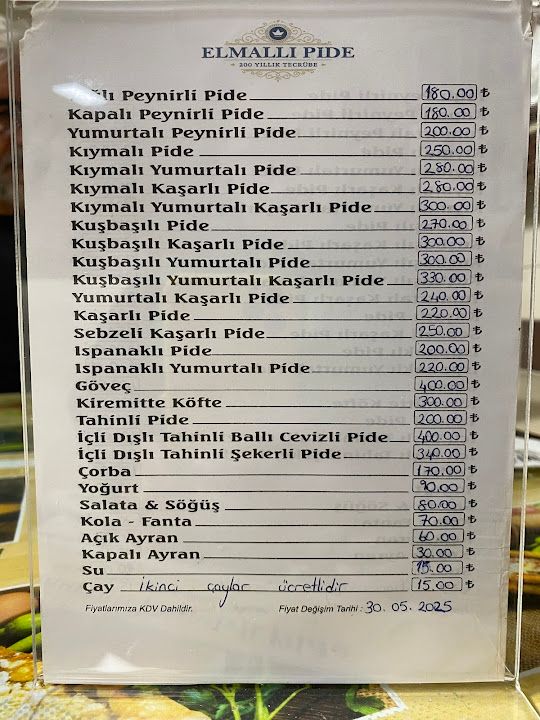 ELMALLI PIDE
200 YILLIK TECRÜBE
Peynirli Pide 180.00 ₺
Kapalı Peynirli Pide 180.00 ₺
Yumurtalı Peynirli Pide 200.00 ₺
Kıymalı Pide 250.00 ₺
Kıymalı Yumurtalı Pide 280.00 ₺
Kıymalı Kaşarlı Pide 280.00 ₺
Kıymalı Yumurtalı Kaşarlı Pide 300.00 ₺
Kuşbaşılı Pide 270.00 ₺
Kuşbaşılı Kaşarlı Pide 300.00 ₺
Kuşbaşılı Yumurtalı Pide 300.00 ₺
Kuşbaşılı Yumurtalı Kaşarlı Pide 330.00 ₺
Yumurtalı Kaşarlı Pide 240.00 ₺
Kaşarlı Pide 220.00 ₺
Sebzeli Kaşarlı Pide 250.00 ₺
Ispanaklı Pide 200.00 ₺
Ispanaklı Yumurtalı Pide 220.00 ₺
Göveç 400.00 ₺
Kiremitte Köfte 300.00 ₺
Tahinli Pide 200.00 ₺
İçli Dışlı Tahinli Ballı Cevizli Pide 400.00 ₺
İçli Dışlı Tahinli Şekerli Pide 340.00 ₺
Çorba 170.00 ₺
Yoğurt 90.00 ₺
Salata & Söğüş 80.00 ₺
Kola - Fanta 70.00 ₺
Açık Ayran 60.00 ₺
Kapalı Ayran 30.00 ₺
Su 15.00 ₺
Çay ikinci çaylar ücretlidir 15.00 ₺
Fiyatlarımıza KDV Dahildir. Fiyat Değişim Tarihi : 30.05.2025